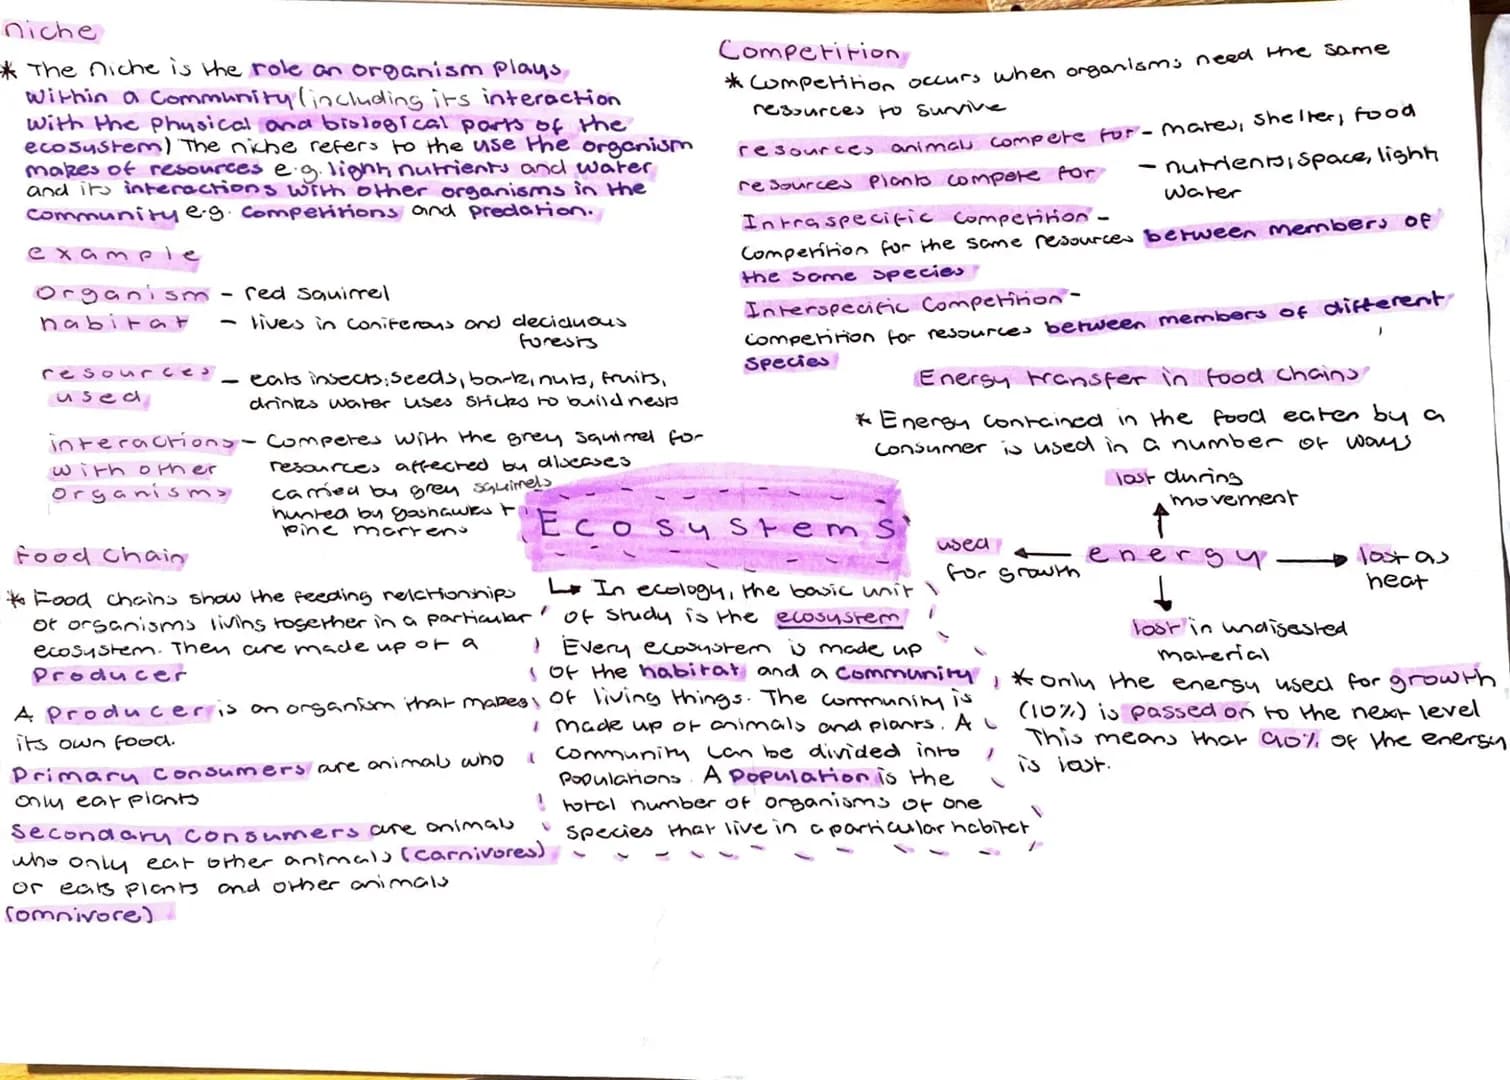 niche
* The niche is the role an organism plays
within a community (including its interaction
with the physical and biological parts of the
ecosystem) The niche refers to the use the organism
makes of resources e.g. light nutrients and water
and its interactions with other organisms in the
community e.g. competitions and predation.
example
organism - red squirrel
habitat - lives in coniferous and deciduous
forests
resources used - eats insects, seeds, bark, nuts, fruits,
drinks water uses sticks to build nests
interactions with other organisms - competes with the grey squirrel for
resources affected by diseases
carried by grey squirrels
hunted by goshawks +
pine martens
Food chain
* Food chains show the feeding relationships
of organisms living together in a particular
ecosystem. They are made up of a
Producer
A producer is an organism that makes
its own food.
Primary consumers are animals who
only eat plants
Secondary consumers are animals
who only eat other animals (carnivores)
or eats plants and other animals
(omnivore)
Ecosystems
↳ In ecology, the basic unit
of study is the ecosystem
Every ecosystem is made up
of the habitat and a community
of living things. The community is
made up of animals and plants. A
community can be divided into
populations. A population is the
total number of organisms of one
species that live in a particular habitat
Competition
* Competition occurs when organisms need the same
resources to survive
resources animals compete for - mates, shelter, food
resources plants compete for - nutrients, space, light
water
Intraspecific competition -
competition for the same resources between members of
the same species
Interspecific competition -
competition for resources between members of different
species
Energy transfer in food chains
* Energy contained in the food eaten by a
consumer is used in a number of ways
lost during
movement
used
for growth
energy
lost as
heat
lost in undigested
material
* only the energy used for growth
(10%) is passed on to the next level
This means that 90% of the energy
is lost.